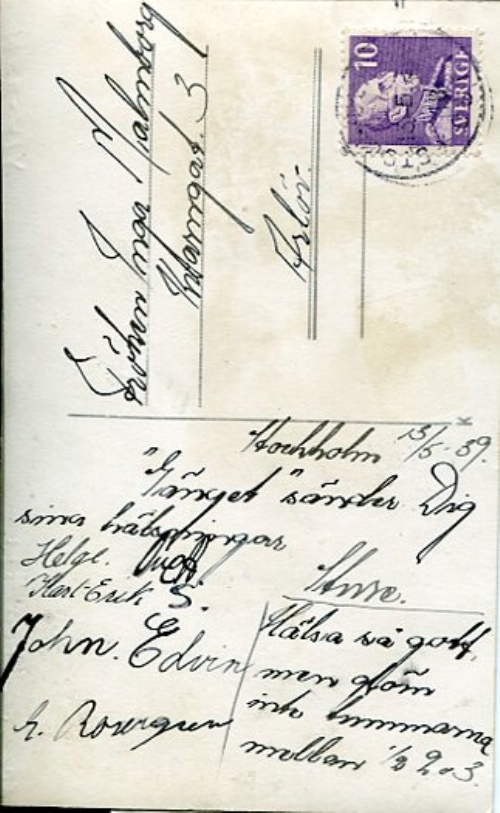 10
SVERIGE
Fröken Inga Malmborg
3
Arlöv.
Stockholm 13/5-39.
"Gänget" sänder Dig
sina hälsningar
Helge.
Karl-Erik S.
Sture.
John. Edvin
E. Rosengren
Hälsa så gott,
men glöm
inte timmarna
mellan 1/2 2 o 3.